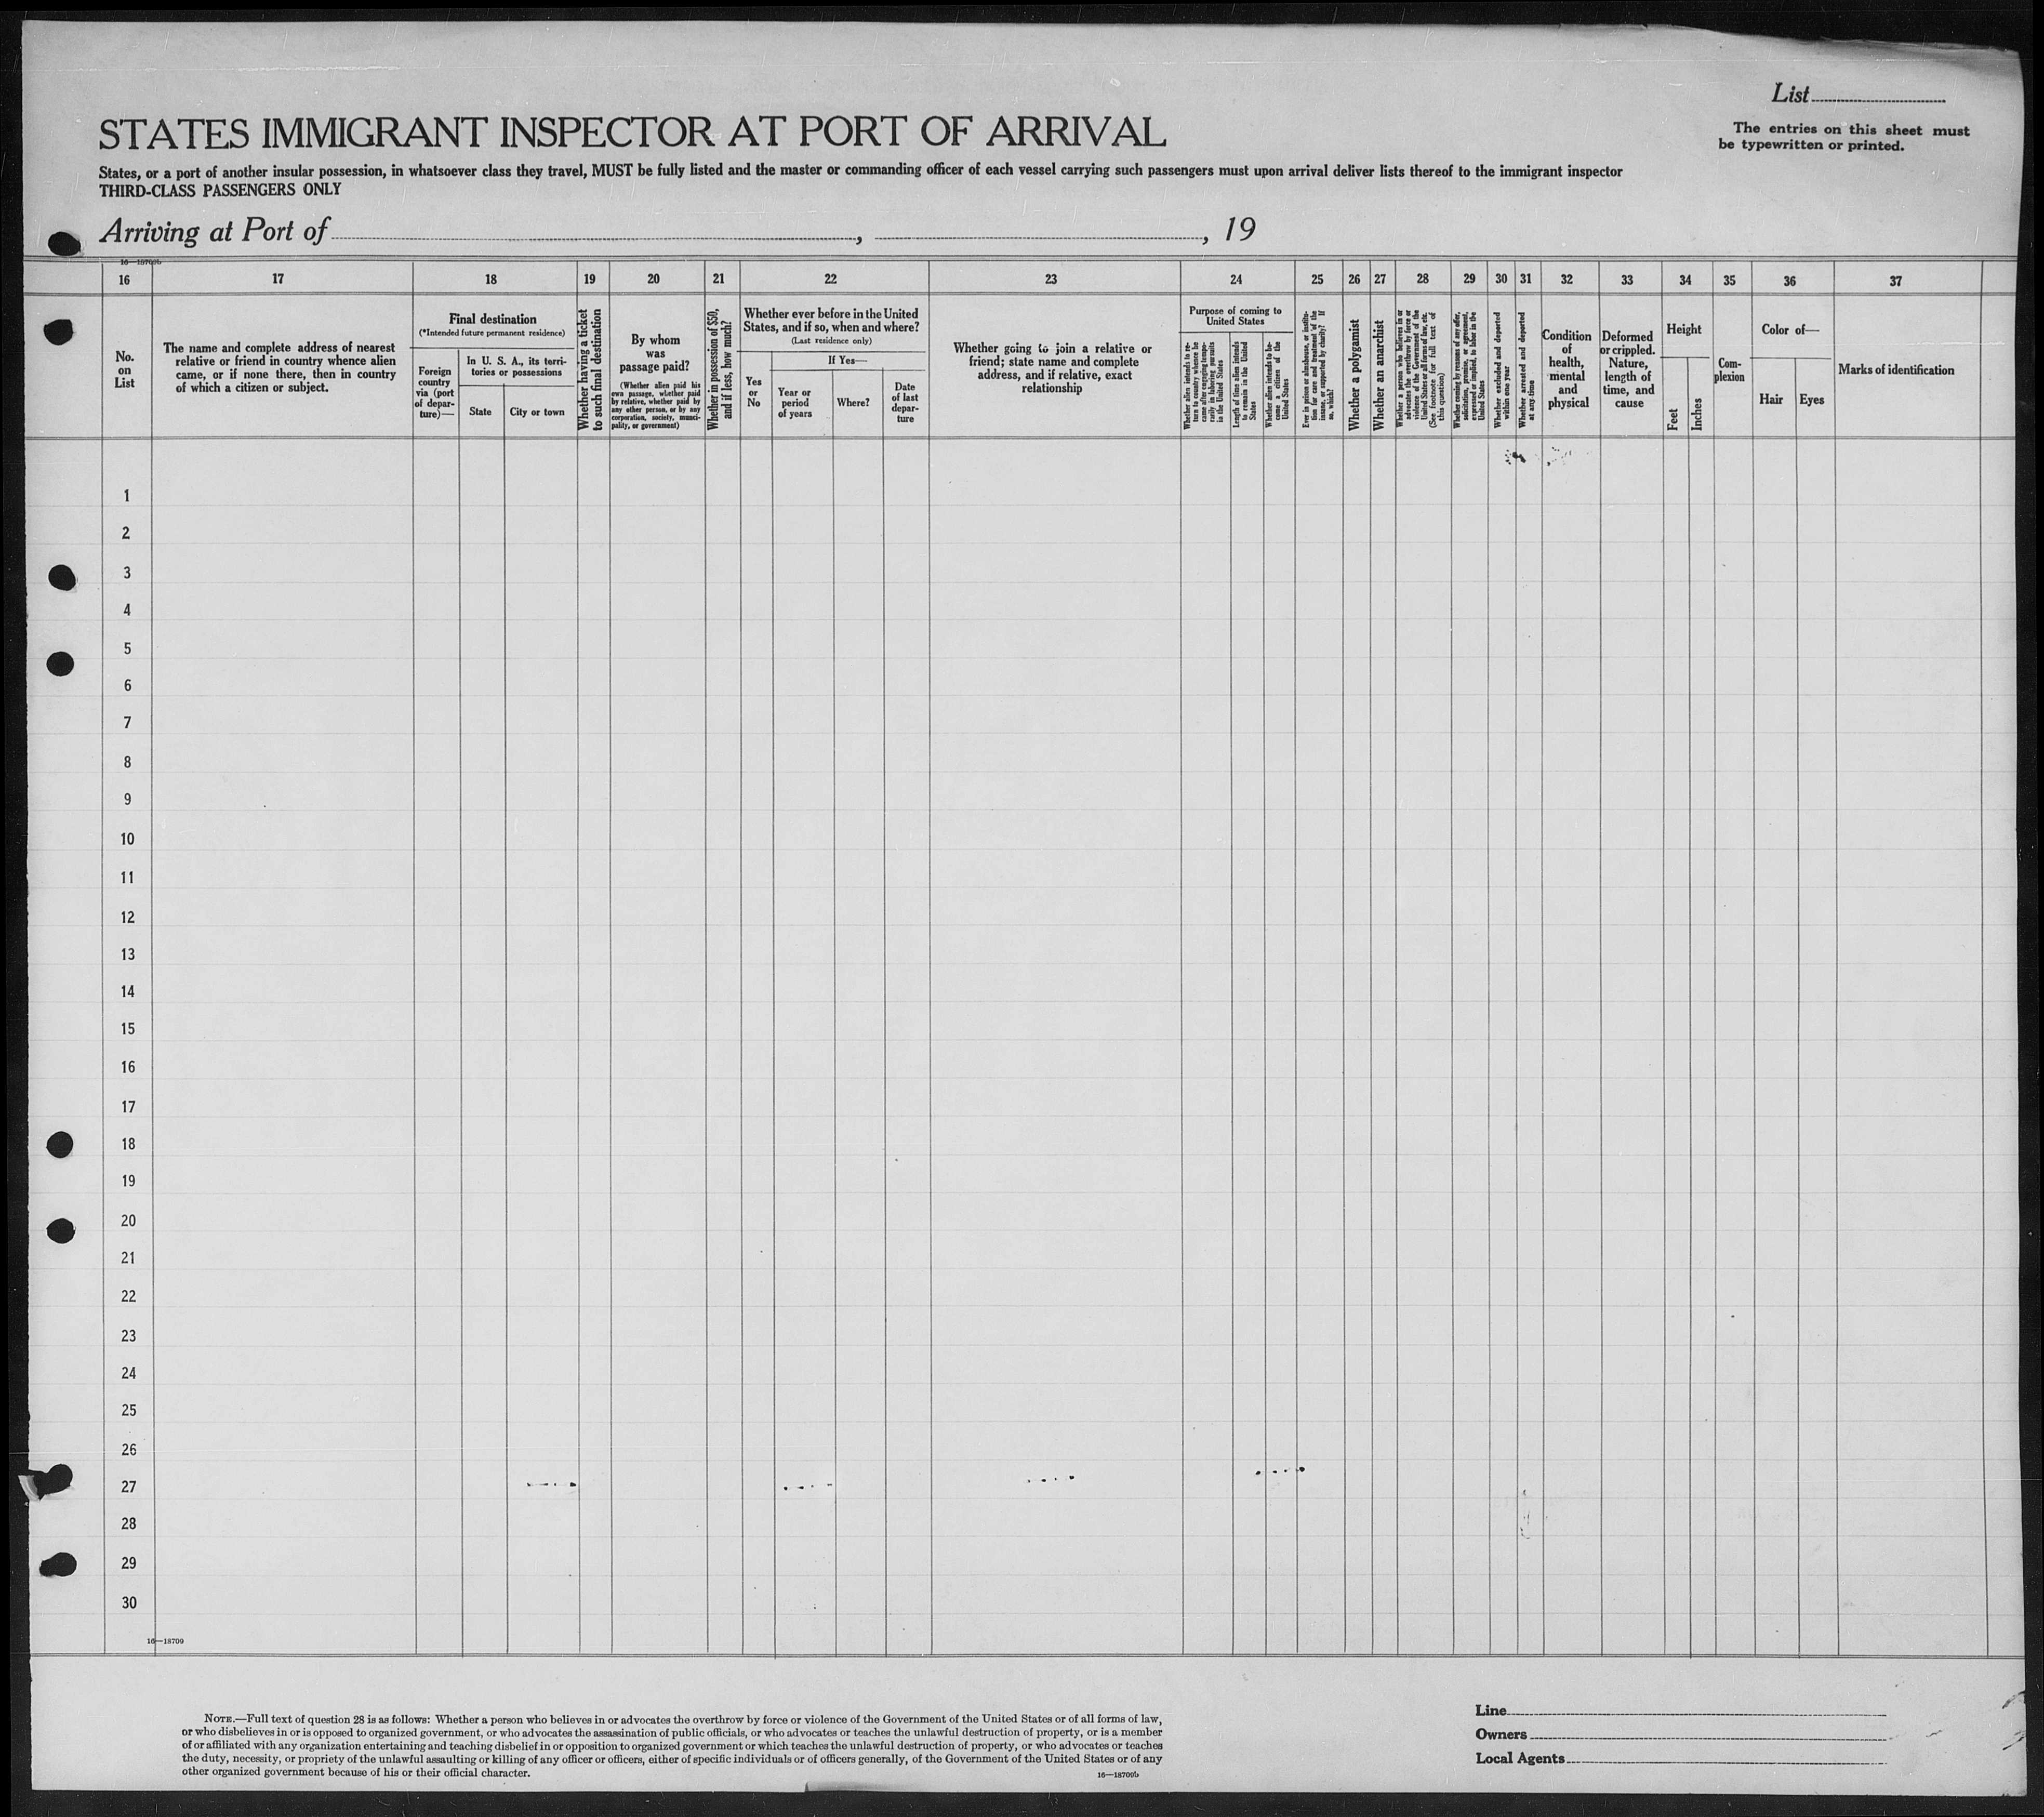 List
The entries on this sheet must
be typewritten or printed.
STATES IMMIGRANT INSPECTOR AT PORT OF ARRIVAL
States, or a port of another insular possession, in whatsoever class they travel, MUST be fully listed and the master or commanding officer of each vessel carrying such passengers must upon arrival deliver lists thereof to the immigrant inspector
THIRD-CLASS PASSENGERS ONLY
Arriving at Port of , , 19
16—18709b
16 17 18 19 20 21 22 23 24 25 26 27 28 29 30 31 32 33 34 35 36 37
No.
on
List
The name and complete address of nearest
relative or friend in country whence alien
came, or if none there, then in country
of which a citizen or subject.
Final destination
(*Intended future permanent residence)
Foreign
country
via (port
of depar-
ture)—
In U. S. A., its terri-
tories or possessions
State
City or town
Whether having a ticket
to such final destination
By whom
was
passage paid?
(Whether alien paid his
own passage, whether paid
by relative, whether paid by
any other person, or by any
corporation, society, munici-
pality, or government)
Whether in possession of $50,
and if less, how much?
Whether ever before in the United
States, and if so, when and where?
(Last residence only)
Yes
or
No
If Yes—
Year or
period
of years
Where?
Date
of last
depar-
ture
Whether going to join a relative or
friend; state name and complete
address, and if relative, exact
relationship
Purpose of coming to
United States
Whether alien intends to re-
turn to country whence he
came after engaging tempo-
rarily in laboring pursuits
in the United States
Length of time alien intends
to remain in the United
States
Whether alien intends to be-
come a citizen of the
United States
Ever in prison or almshouse, or institu-
tion for care and treatment of the
insane, or supported by charity? If
so, which?
Whether a polygamist
Whether an anarchist
Whether a person who believes in or
advocates the overthrow by force or
violence of the Government of the
United States or all forms of law, etc.
(See footnote for full text of
this question)
Whether coming by reason of any offer,
solicitation, promise, or agreement,
expressed or implied, to labor in the
United States
Whether excluded and deported
within one year
Whether arrested and deported
at any time
Condition
of
health,
mental
and
physical
Deformed
or crippled.
Nature,
length of
time, and
cause
Height
Feet
Inches
Com-
plexion
Color of—
Hair
Eyes
Marks of identification
1
2
3
4
5
6
7
8
9
10
11
12
13
14
15
16
17
18
19
20
21
22
23
24
25
26
27
28
29
30
16—18709
NOTE.—Full text of question 28 is as follows: Whether a person who believes in or advocates the overthrow by force or violence of the Government of the United States or of all forms of law,
or who disbelieves in or is opposed to organized government, or who advocates the assassination of public officials, or who advocates or teaches the unlawful destruction of property, or is a member
of or affiliated with any organization entertaining and teaching disbelief in or opposition to organized government or which teaches the unlawful destruction of property, or who advocates or teaches
the duty, necessity, or propriety of the unlawful assaulting or killing of any officer or officers, either of specific individuals or of officers generally, of the Government of the United States or of any
other organized government because of his or their official character.
16—18709b
Line
Owners
Local Agents